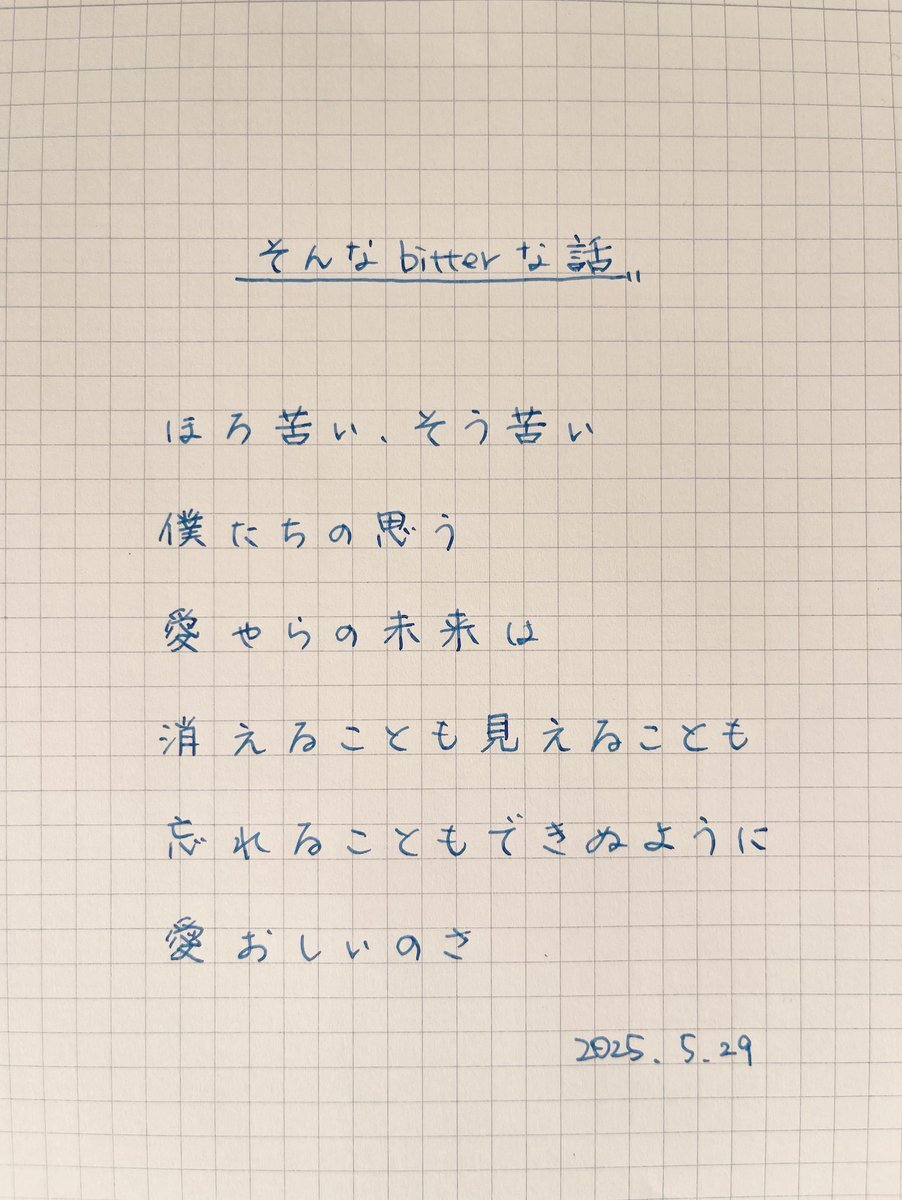 そんなbitterな話
ほろ苦い、そう苦い
僕たちの思う
愛やらの未来は
消えることも見えることも
忘れることもできぬように
愛おしいのさ
2025.5.29